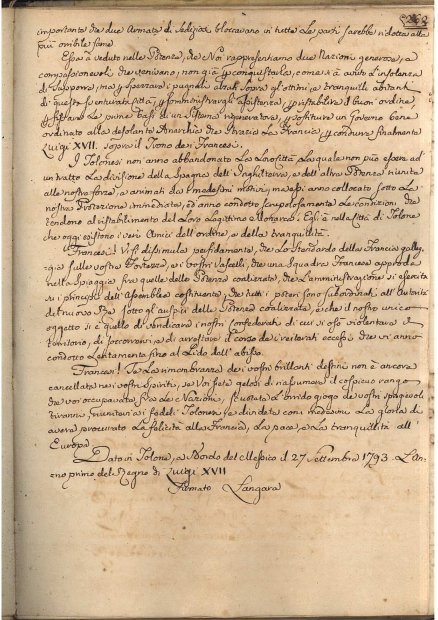 importante che due Armate di Sediziosi bloccavano in tutte le parti sarebbe ridotta alla
più orribile fame.
Essa à veduto nelle Potenze, che Noi rappresentiamo due Nazioni generose, e
compassionevoli che venivano, non già per conquistarla, come s'è avuto l'insolenza
di supporre, ma per sperare i pugnali alzati sopra gli ottimi e tranquilli abitanti
di questa sventurata città, per somministrargli assistenza per ristabilire il buon ordine,
per gettare le prime basi di un Sistema rigeneratore, per sostituire un Governo bene
ordinato alla desolante Anarchia che strazia la Francia, per condurre finalmente
Luigi XVII. sopra il Trono dei Francesi.
I Tolonesi non anno abbandonato la Causa la quale non può essere ad
un tratto la divisione della Spagna, dell'Inghilterra, e dell'altre Potenze riunite
alle nostre forze, e animati da medesimi motivi, ma essi anno collocato sotto la
nostra Protezione immediata, ed anno condotto scrupolosamente le condizioni che
tendono al ristabilimento del loro Legittimo Monarca: Egli è nella città di Tolone
che oggi esistono i veri Amici dell'ordine, e della tranquillità.
Francesi! Vi si dissimula perfidamente, che lo Stendardo della Francia galleg-
gia sulle vostre Fortezze, e i vostri Vascelli, che una Squadra Francese approda
nella Spiaggia fra quelle delle Potenze coalizzate, che l'amministrazione si esercita
su i principj dell'Assemblea costituente, che tutti i poteri sono subordinati all'Autorità
del nuovo Re sotto gli auspicj delle Potenze coalizzate, e che il nostro unico
oggetto si è quello di vendicare i nostri confederati di cui si osò violentare il
territorio, di soccorrervi, e di arrestare il corso dei reiterati eccessi che vi anno
condotto lentamente fino al lido dell'abisso.
Francesi! Se la rimembranza dei vostri brillanti destini non è ancora
cancellata nei vostri Spiriti, se Voi siete gelosi di riassumere il cospicuo rango
che voi occupavate fra le Nazioni, scuotete l'orrido giogo de vostri spregevoli
tiranni, riunitevi ai fedeli Tolonesi, e dividete con i medesimi la gloria di
avere procurato la felicità alla Francia, la pace, e la tranquillità all'
Europa.
Dato in Tolone, a Bordo del Messico il 27 Settembre 1793. L'an-
no primo del Regno di Luigi XVII
Firmato Langara